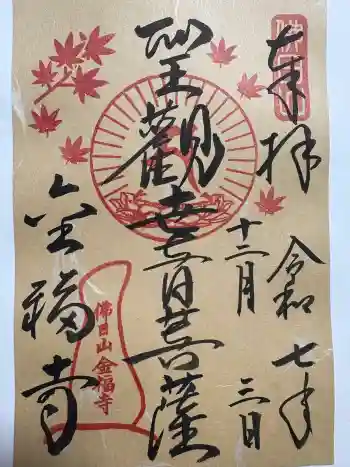 奉拝
令和七年
十二月
三日
聖觀世音菩薩
金福寺
佛日山金福寺